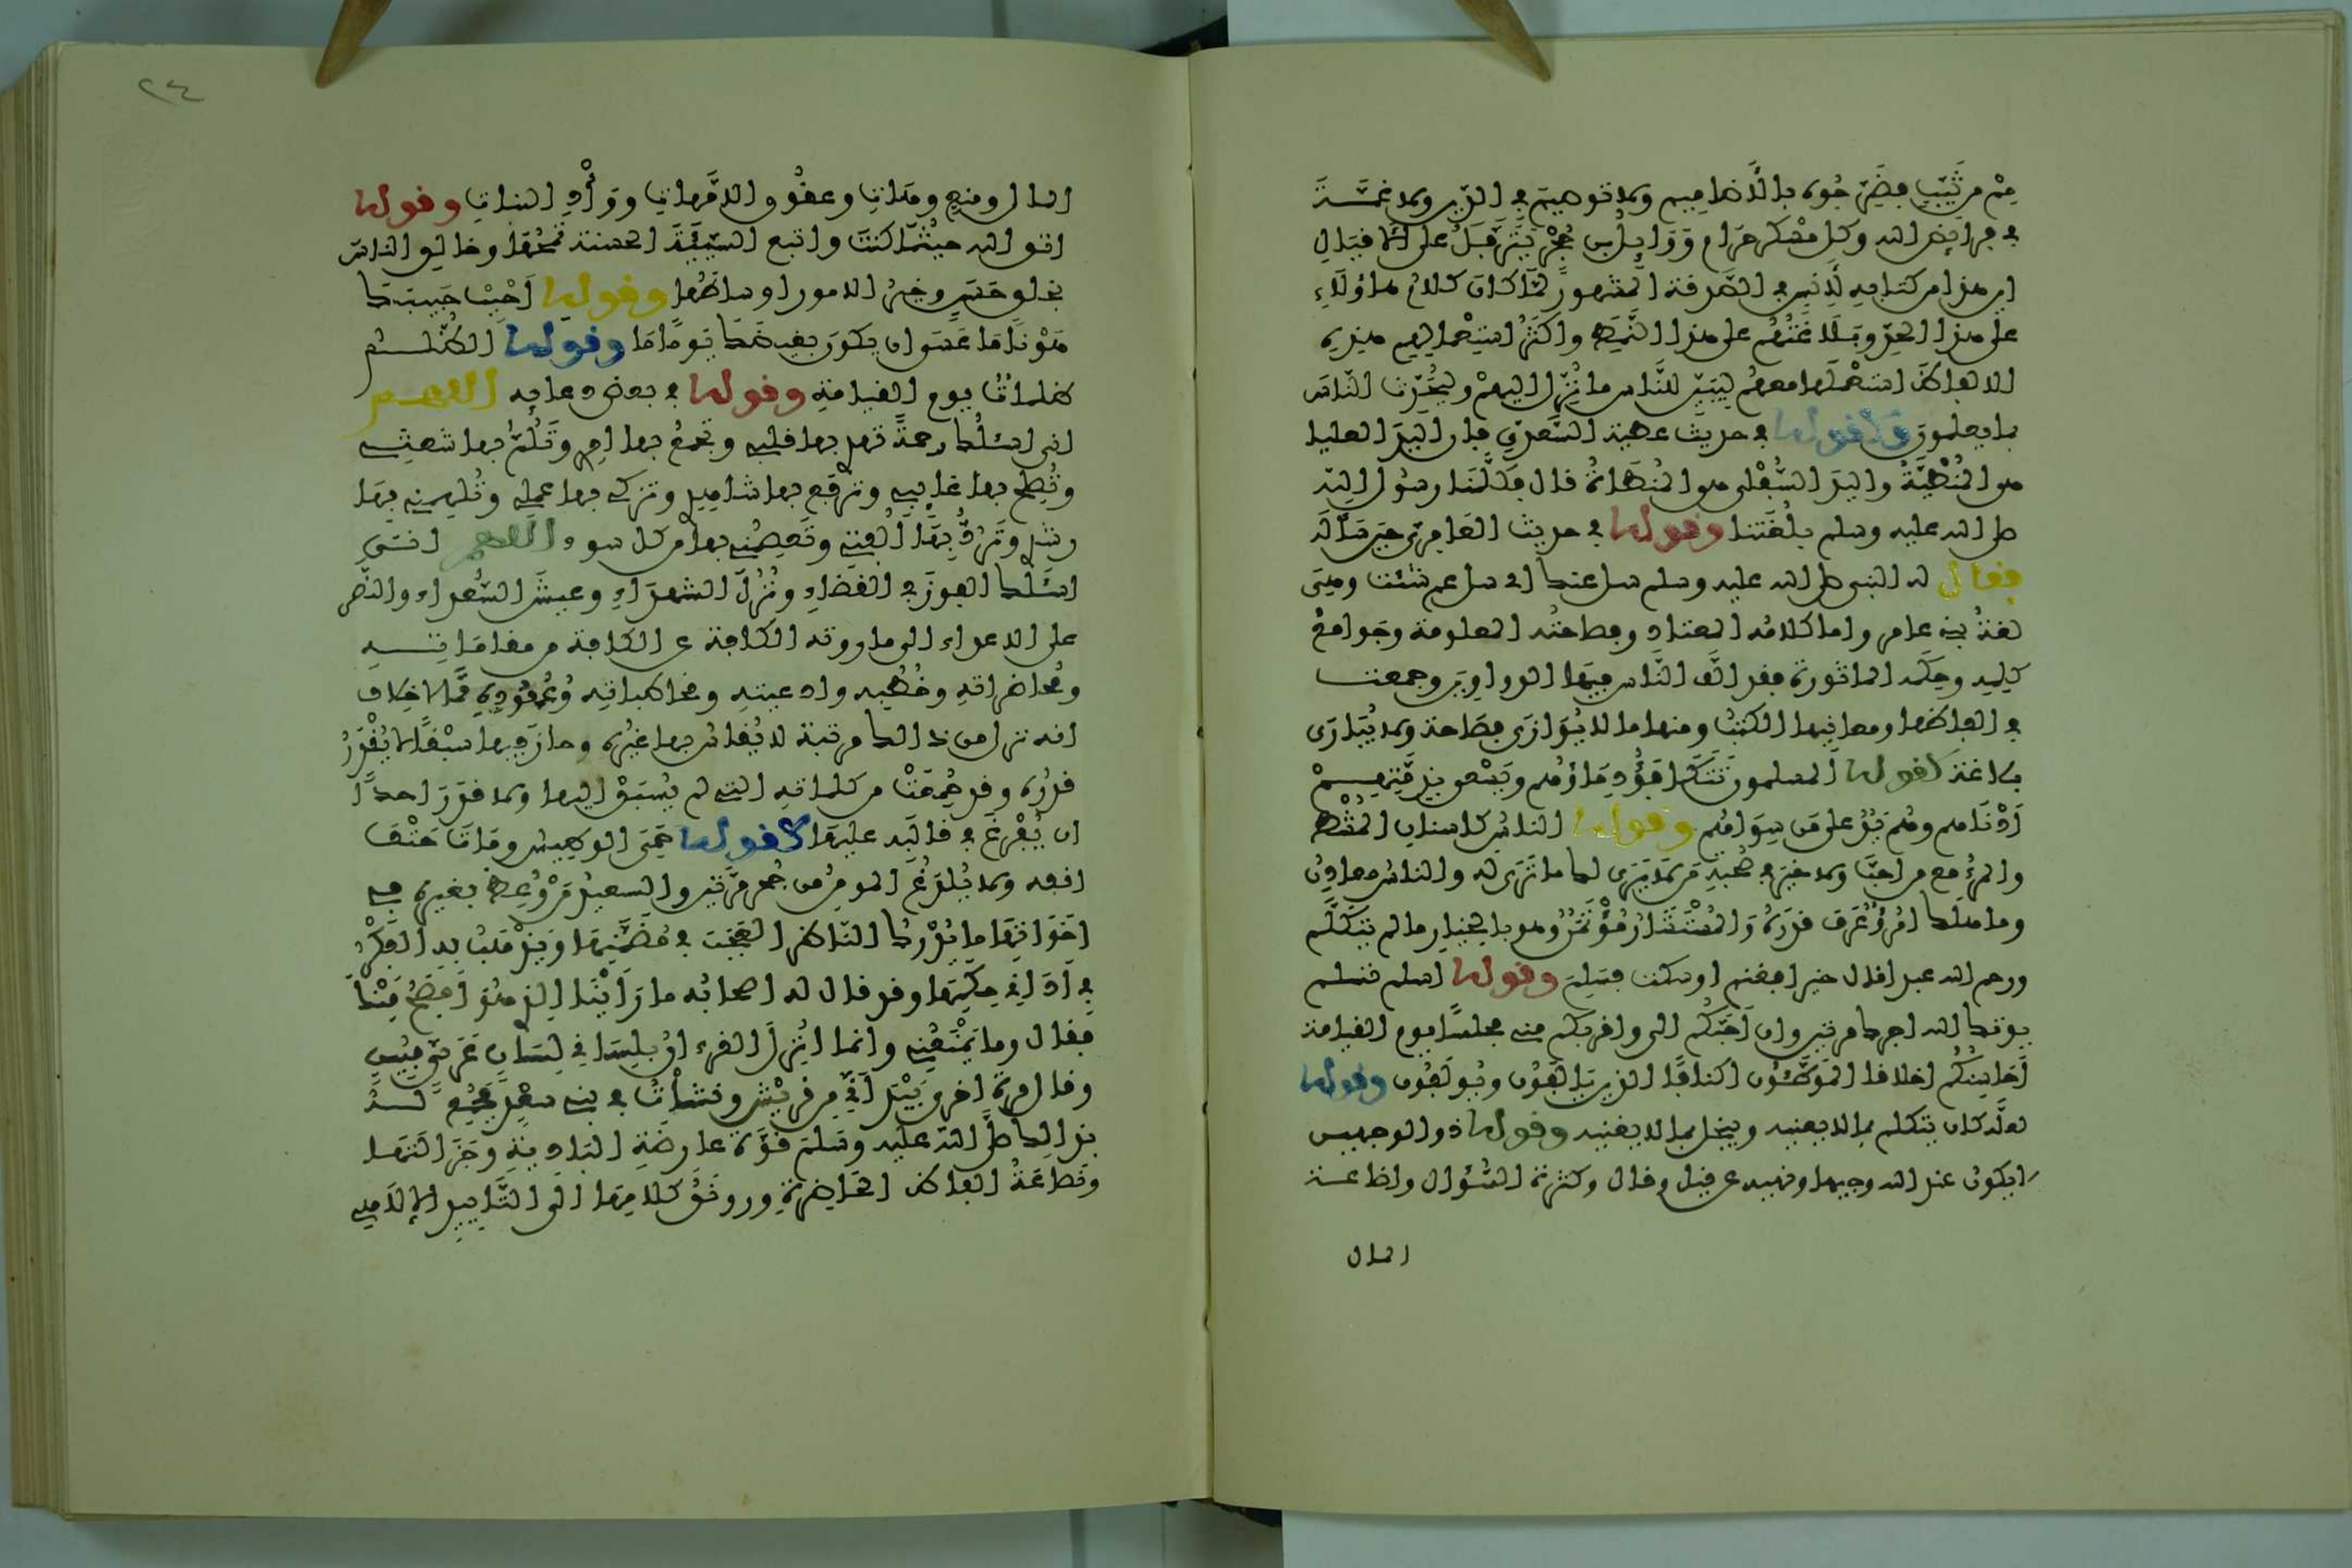 مِنْ ثَيِّبٍ فَضَرِّجُوهُ بالأضاميم ولا توصيم في الدين ولا غمة
في فرائض الله وكل مسكر حرام ووائل بن حجر يترفل على الاقيال
اين هذا من كتابه لأنس في الصدقة المشهور لما كان كلام هاؤلاء
على هذا الحد وبلاغتهم على هذا النمط واكثر استعمالهم هذه
الالفاظ استعملها معهم ليبين للناس ما نزل اليهم وليحدث الناس
بما يعلمون وكقوله في حديث عطية السعدي فان اليد العليا
هي المنطية واليد السفلى هي المنطاة قال فكلمنا رسول الله
صلى الله عليه وسلم بلغتنا وقوله في حديث العامري حين سأله
فقال له النبي صلى الله عليه وسلم سل عنك اي سل عم شئت وهي
لغة بني عامر واما كلامه المعتاد وفصاحته المعلومة وجوامع
كلمه وحكمه الماثورة فقد الف الناس فيها الدواوين وجمعت
في الفاظها ومعانيها الكتب ومنها ما لا يوازى فصاحة ولا يبارى
بلاغة كقوله المسلمون تتكافؤ دماؤهم ويسعى بذمتهم
ادناهم وهم يد على من سواهم وقوله الناس كاسنان المشط
والمرء مع من احب ولا خير في صحبة من لا يرى لك ما ترى له والناس معادن
وما هلك امرؤ عرف قدره والمستشار مؤتمن وهو بالخيار ما لم يتكلم
ورحم الله عبدا قال خيرا فغنم او سكت فسلم وقوله اسلم تسلم
يوتك الله اجرك مرتين وان احبكم الي واقربكم مني مجلسا يوم القيامة
احاسنكم اخلاقا الموطئون اكنافا الذين يالفون ويولفون وقوله
لعله كان يتكلم بما لا يعنيه ويبخل بما لا يغنيه وقوله ذو الوجهين
لا يكون عند الله وجيها ونهيه عن قيل وقال وكثرة السؤال واضاعة
المال
٢٤
المال ومنع وهات وعقوق الامهات ووأد البنات وقوله
اتق الله حيثما كنت واتبع السيئة الحسنة تمحها وخالق الناس
بخلق حسن وخير الامور اوساطها وقوله احبب حبيبك
هونا ما عسى ان يكون بغيضك يوما ما وقوله الظلم
ظلمات يوم القيامة وقوله في بعض دعائه اللهم
اني اسئلك رحمة تهدي بها قلبي وتجمع بها امري وتلم بها شعثي
وتصلح بها غائبي وترفع بها شاهدي وتزكي بها عملي وتلهمني بها
رشدي وترد بها الفتي وتعصمني بها من كل سوء اللهم اني
اسئلك الفوز في القضاء ونزل الشهداء وعيش السعداء والنصر
على الاعداء الى ما روته الكافة عن الكافة من مقاماته
ومحاضراته وخطبه وادعيته ومخاطباته وعهوده مما لا خلاف
انه نزل من ذالك مرتبة لا يقاس بها غيره وحاز فيها سبقا لا يقدر
قدره وقد جمعت من كلماته التي لم يسبق اليها ولا قدر احد
ان يفرغ في قالبه عليها كقوله حمي الوطيس ومات حتف
انفه ولا يلدغ المومن من جحر مرتين والسعيد من وعظ بغيره في
اخواتها ما يدرك الناظر العجب في مضمنها ويذهب به الفكر
في اداني حكمها وقد قال له اصحابه ما راينا الذي هو افصح منك
فقال وما يمنعني وانما انزل القرءان بلساني لسان عربي مبين
وقال مرة اخرى بيد اني من قريش ونشأت في بني سعد فجمع له
بذالك صلى الله عليه وسلم قوة عارضة البادية وجزالتها
ونصاعة الفاظ الحاضرة ورونق كلامها الى التاييد الالاهي